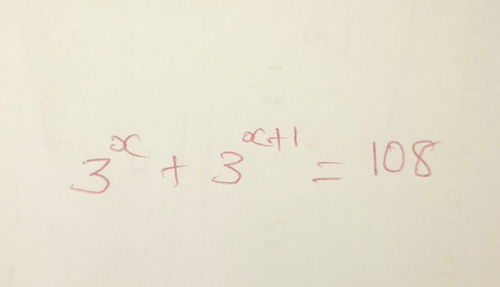 3^x + 3^{x+1} = 108